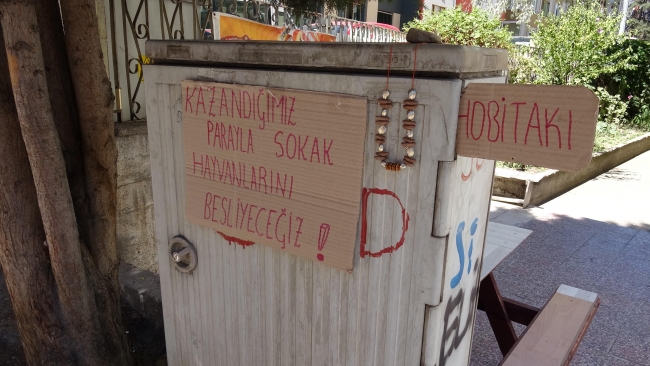 KAZANDIĞIMIZ
PARAYLA SOKAK
HAYVANLARINI
BESLİYECEĞİZ !
HOBİTAKI
D
Si